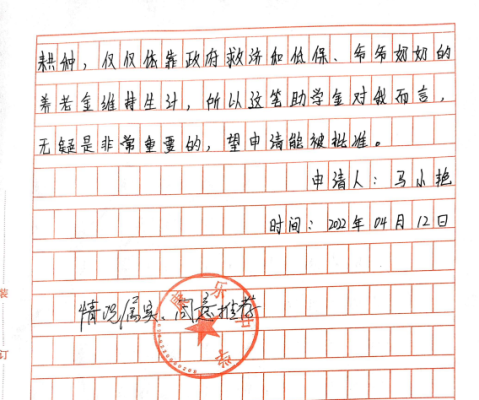 耕种，仅仅依靠政府救济和低保、爷爷奶奶的
养老金维持生计，所以这笔助学金对我而言，
无疑是非常重要的，望申请能被批准。
申请人：马小艳
时间：2022年04月12日
情况属实、同意推荐
乐
中
学
装
订